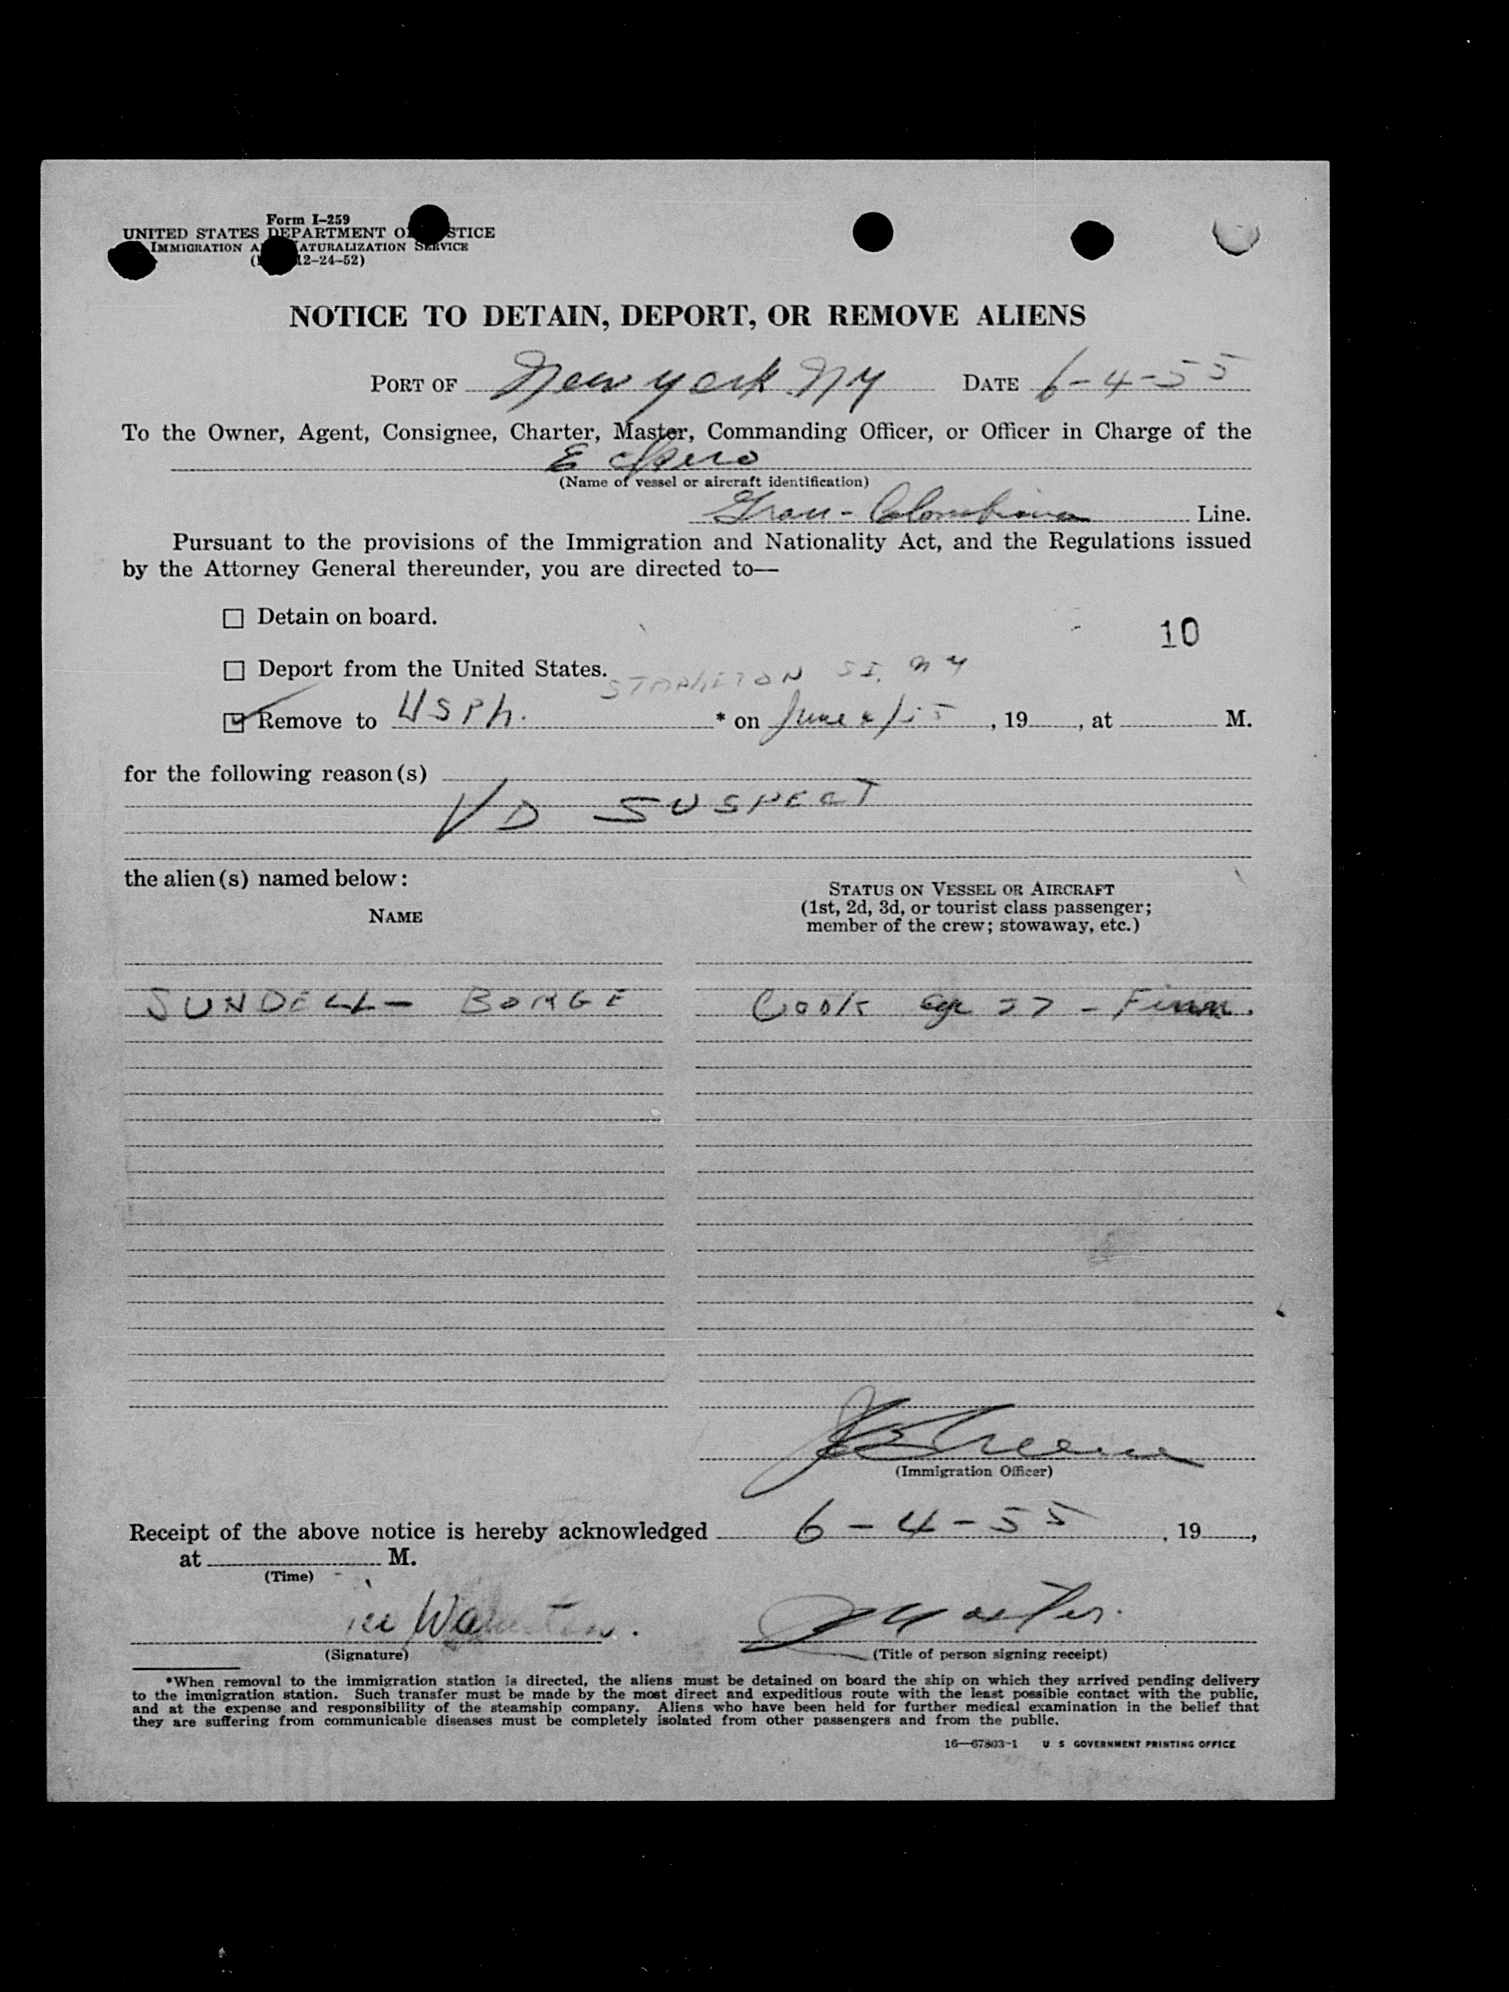 Form I-259
UNITED STATES DEPARTMENT O STICE
IMMIGRATION A ATURALIZATION SERVICE
12-24-52)
NOTICE TO DETAIN, DEPORT, OR REMOVE ALIENS
PORT OF New york NY DATE 6-4-55
To the Owner, Agent, Consignee, Charter, Master, Commanding Officer, or Officer in Charge of the
(Name of vessel or aircraft identification)
Gran-Colombiana Line.
Pursuant to the provisions of the Immigration and Nationality Act, and the Regulations issued
by the Attorney General thereunder, you are directed to—
☐ Detain on board.
10
☐ Deport from the United States.
STAPLETON S.I. NY
☑ Remove to USPh. * on June , 19 , at M.
for the following reason(s)
VD SUSPECT
the alien(s) named below:
STATUS ON VESSEL OR AIRCRAFT
(1st, 2d, 3d, or tourist class passenger;
member of the crew; stowaway, etc.)
NAME
SUNDELL- BORGE Cook age 27 - Finn.
(Immigration Officer)
Receipt of the above notice is hereby acknowledged 6-4-55, 19 ,
at M.
(Time)
Master.
(Signature) (Title of person signing receipt)
*When removal to the immigration station is directed, the aliens must be detained on board the ship on which they arrived pending delivery
to the immigration station. Such transfer must be made by the most direct and expeditious route with the least possible contact with the public,
and at the expense and responsibility of the steamship company. Aliens who have been held for further medical examination in the belief that
they are suffering from communicable diseases must be completely isolated from other passengers and from the public.
16—67803-1 U S GOVERNMENT PRINTING OFFICE